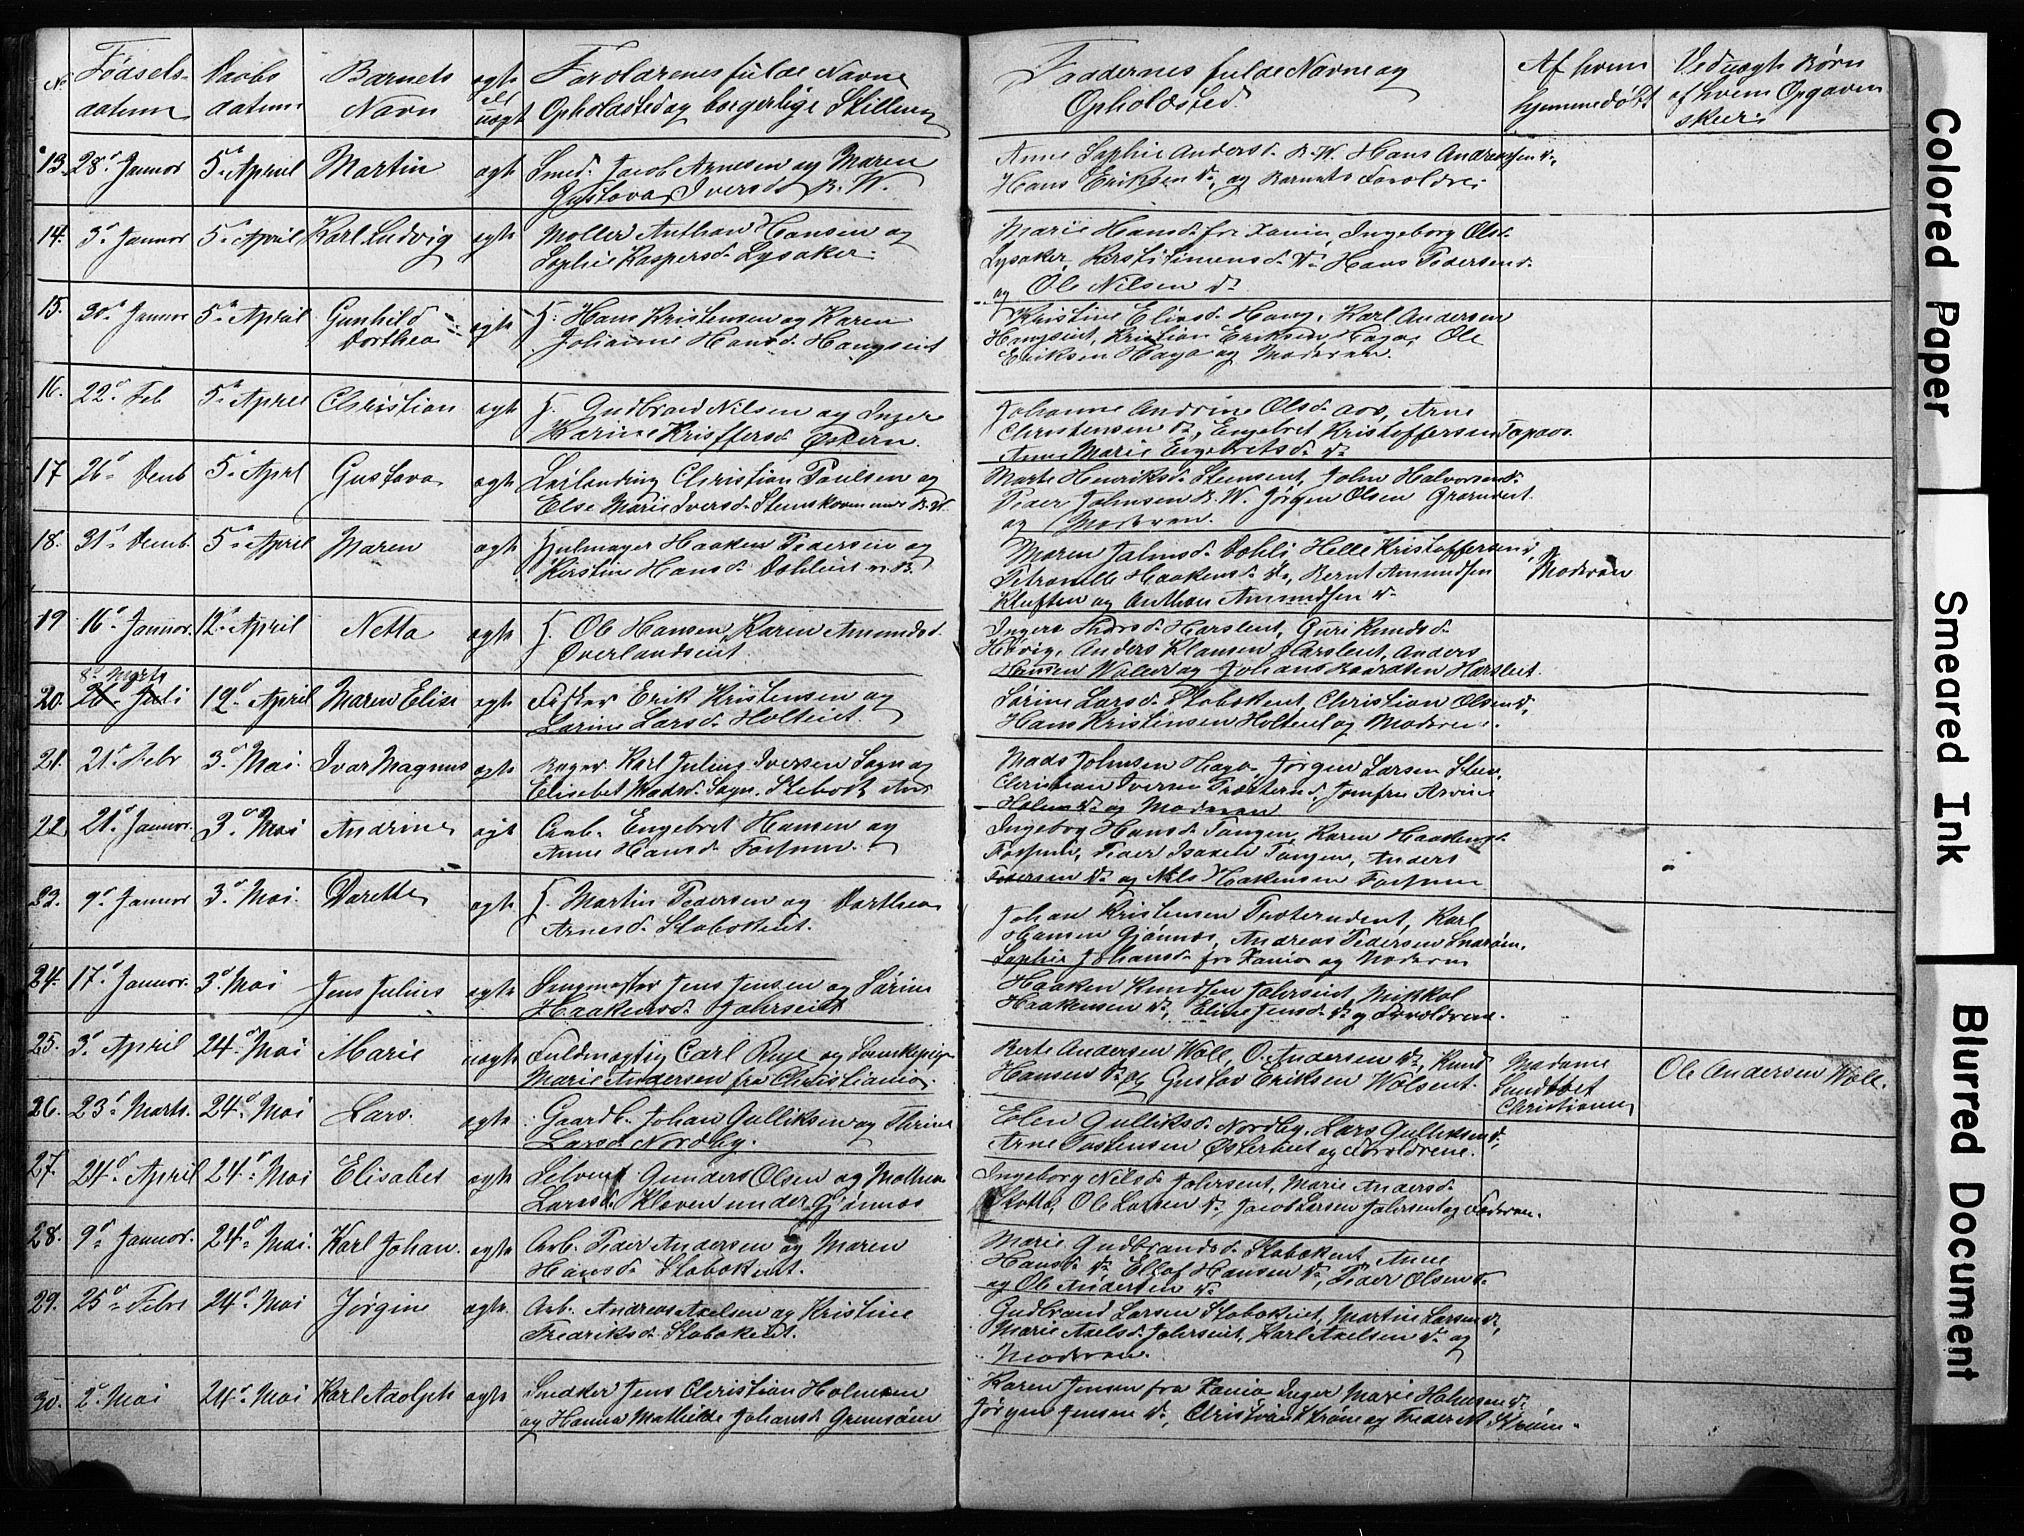 No Fødsels- Daabs Barnets ægte Forældrenes fulde Navne Faddernes fulde Navne og Af hvem Ved uægte Børn
datum datum Navn ell uægt Opholdsted og borgerlige Stilling Opholdsted. hjemmedøbt af hvem Opgaven
skeer.
13. 28de Januar 5te April Martin ægte Smed Jacob Arnesen og Maren
Gustava Iversd B. W.
Anne Sophie Andersd B. W. Hans Andreassen do,
Hans Eriksen do, og Barnets Forældre.
14. 3de Januar 5te April Karl Ludvig ægte Møller Anthon Hansen og
Sophie Kaspersd. Lysaker.
Marie Hansd. fra Xania, Ingeborg Olsd.
Lysaker, Kersti Simensd do Hans Pedersen do.
og Ole Nilsen do
15. 30de Januar 5te April Gunhild ægte Hans Kristensen og Karen
Dorthea Johanne Hansd. Haugseiet
Kristine Eliasd. Haug, Karl Andersen
Haugseiet, Kristian Eriksen Haga, Ole
Eriksen Haga og Moderen.
16. 22de Feb 5te April Christian ægte Gudbrand Nilsen og Inger
Karine Kristoffersd Østern.
Johanne Andrine Olsd. Aas, Arne
Christensen do, Engebret Kristoffersen Topaas.
Anne Marie Engebretsd. do
17 26de Decmb 5te April Gustava ægte Christian Paulsen og
Else Marie Iversd. B. W.
Marte Henriksd. Steinseiet, John Halvorsen do.
Peder Johnsen B. W. Jørgen Olsen
og Moderen.
18. 31te Decmb. 5te April Maren ægte Hjulmager Haaken Pedersen og
Kirstine Hansd.
Maren Dahli Helle Kristoffersen do,
Petronelle Haakensd. do, Bernt Amundsen
Kluften og Anthon Amundsen do.
Moderen
19 16de Januar. 12te April Netta ægte Ole Hansen, Karen Amundsd.
Øverlandseiet.
Ingers Harsleiet, Guri Knudsd.
Høvig, Anders Klausen Harsleiet, Anders
Hansen Wøien og Johans Harsleiet.
8de Marts
20. 26de Juli 12te April Maren Elise ægte Erik Kristensen og
Larine Larsd. Holteiet.
Sørine Larsd. Slabokeiet, Christian Olsen do,
Hans Kristensen Holteiet og Moderen.
21. 21de Febr 3de Mai. Ivar Magnus ægte Bager Karl Julius Iversen Sogn og
Elisebet Madsd. Sogn.
Mads Johnsen Haga Jørgen Larsen Sten,
Christian Iversen Jomfru
Holm do og Moderen
22. 21de Januar. 3de Mai Andrine ægte Arb. Engebret Hansen og
Anne Hansd. Fossum.
Ingeborg Hansd. Tangen, Karen Haakensd.
Fossum, Peder Isaksen Tangen, Anders
Pedersen do og Nils Haakensen Fossum
23. 9de Januar 3de Mai. Dorette ægte Martin Pedersen og Dorthea
Arnesd. Slabokeiet.
Johan Kristensen Karl
Hansen Gjønnes, Andreas Pedersen Snarøen,
Sophie Johansd. fra Xania og Moderen
24. 17de Januar. 3de Mai Jens Julius ægte Jens Jensen og Sørine
Haakensd. Johrseiet
Haaken Knudsen Johrseiet, Mikkel
Haakensen do, Eline Jensd. do og Forældrene.
25. 3de April 24de Mai Marie uægte Fuldmægtig Carl Ruge og
Marie Andersen fra Christiania.
Berte Andersen Woll, O. Andersen do, Knud
Hansen do og Gustav Eriksen Wolseiet.
Madame
Sundtoet
Christiania
Ole Andersen Woll.
26. 23de Marts. 24de Mai Lars. ægte Gaardb. Johan Gulliksen og Thrine
Larsd. Nordby.
Elen Gulliksd. Nordby. Lars Gulliksen do,
Arne Tostensen Østerneiet og Forældrene.
27. 24de April 24de Mai Elisabet ægte Selveier Gunder Olsen og Mathea
Larsd. Kleven under Gjønnes
Ingeborg Nilsd. Johrseiet, Marie Andersd.
Slotta, Ole Larsen do, Jacob Larsen Johrseiet og Faderen.
28. 9de Januar. 24de Mai. Karl Johan. ægte Arb. Peder Andersen og Maren
Hansd. Slabokeiet.
Marie Gudbrandsd. Slabokeiet, Anne
Hansd. do Ellef Hansen do, Peder Olsen do
og Ole Andersen do.
29. 25de Febr 24de Mai Jørgine ægte Arb. Andreas Axelsen og Kristine
Fredriksd. Slabokeiet.
Gudbrand Larsen Slabokeiet, Martin Larsen do,
Marie Axelsd. Johrseiet, Karl Axelsen do og
Moderen.
30. 2de Mai 24de Mai Karl Adolph ægte Snedker Jens Christian Holmsen
og Hanna Mathilde Johansd. Grimsøen
Karen Jensen fra Xania Inger Marie Holmsen do
Jørgen Jensen do, Christian Strøm og Frederik Strøm.
Colored Paper
Smeared Ink
Blurred Document